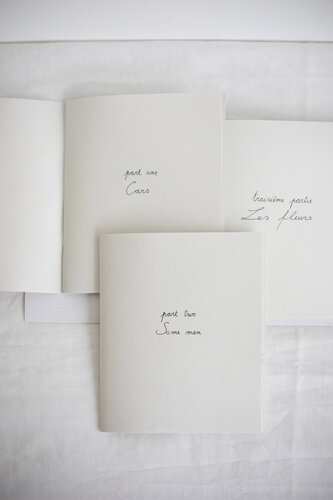 part one
Cars
troisième partie
Les fleurs
part two
Some men